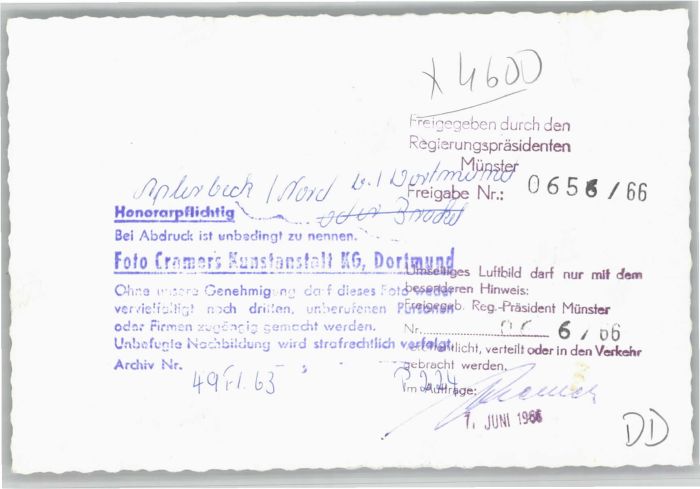 x 4600
Freigegeben durch den
Regierungspräsidenten
Münster
Freigabe Nr.: 0656/66
Aplerbeck / Nord b./ Dortmund
oder Brackel
Honorarpflichtig
Bei Abdruck ist unbedingt zu nennen.
Foto Cramers Kunstanstalt KG, Dortmund
Ohne unsere Genehmigung darf dieses Foto weder
vervielfältigt noch dritten, unberufenen Personen
oder Firmen zugängig gemacht werden.
Unbefugte Nachbildung wird strafrechtlich verfolgt.
Archiv Nr.
Umseitiges Luftbild darf nur mit dem
besonderen Hinweis:
Freigegeb. Reg.-Präsident Münster
Nr. 6/66
veröffentlicht, verteilt oder in den Verkehr
gebracht werden.
Im Auftrage:
7. JUNI 1966
DD